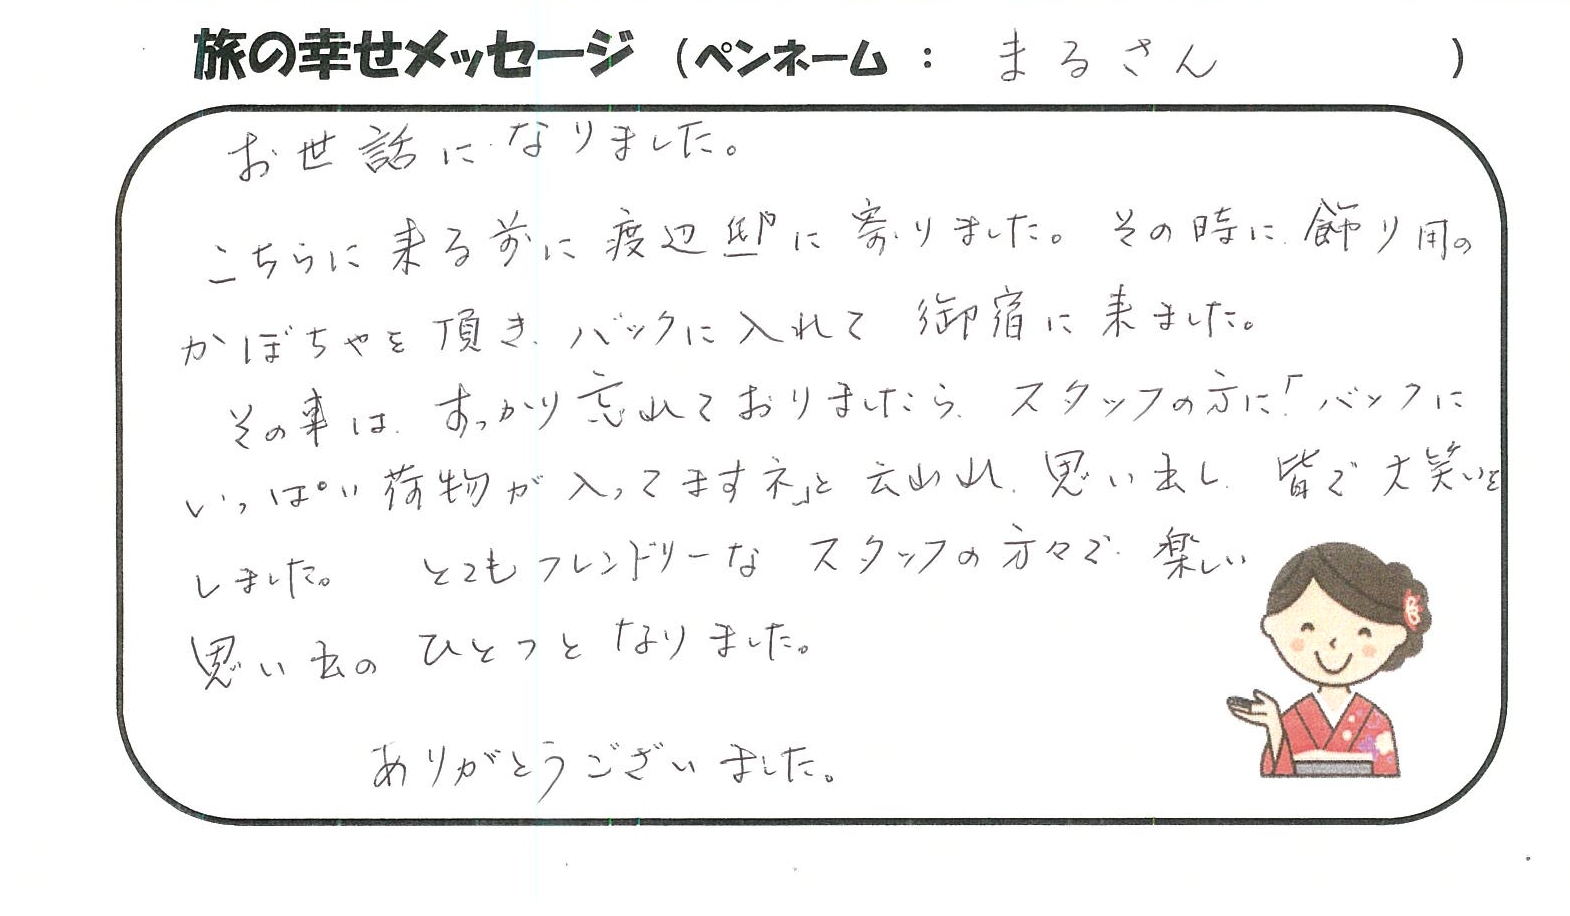 旅の幸せメッセージ (ペンネーム : まるさん )
お世話になりました。
こちらに来る前に渡辺邸に寄りました。その時に飾り用の
かぼちゃを頂き、バックに入れて御宿に来ました。
その事は、すっかり忘れておりましたら、スタッフの方に「バックに
いっぱい荷物が入ってますネ」と云われ、思い出し、皆で大笑いを
しました。 とてもフレンドリーな スタッフの方々で、楽しい
思い出の ひとつと なりました。
ありがとうございました。